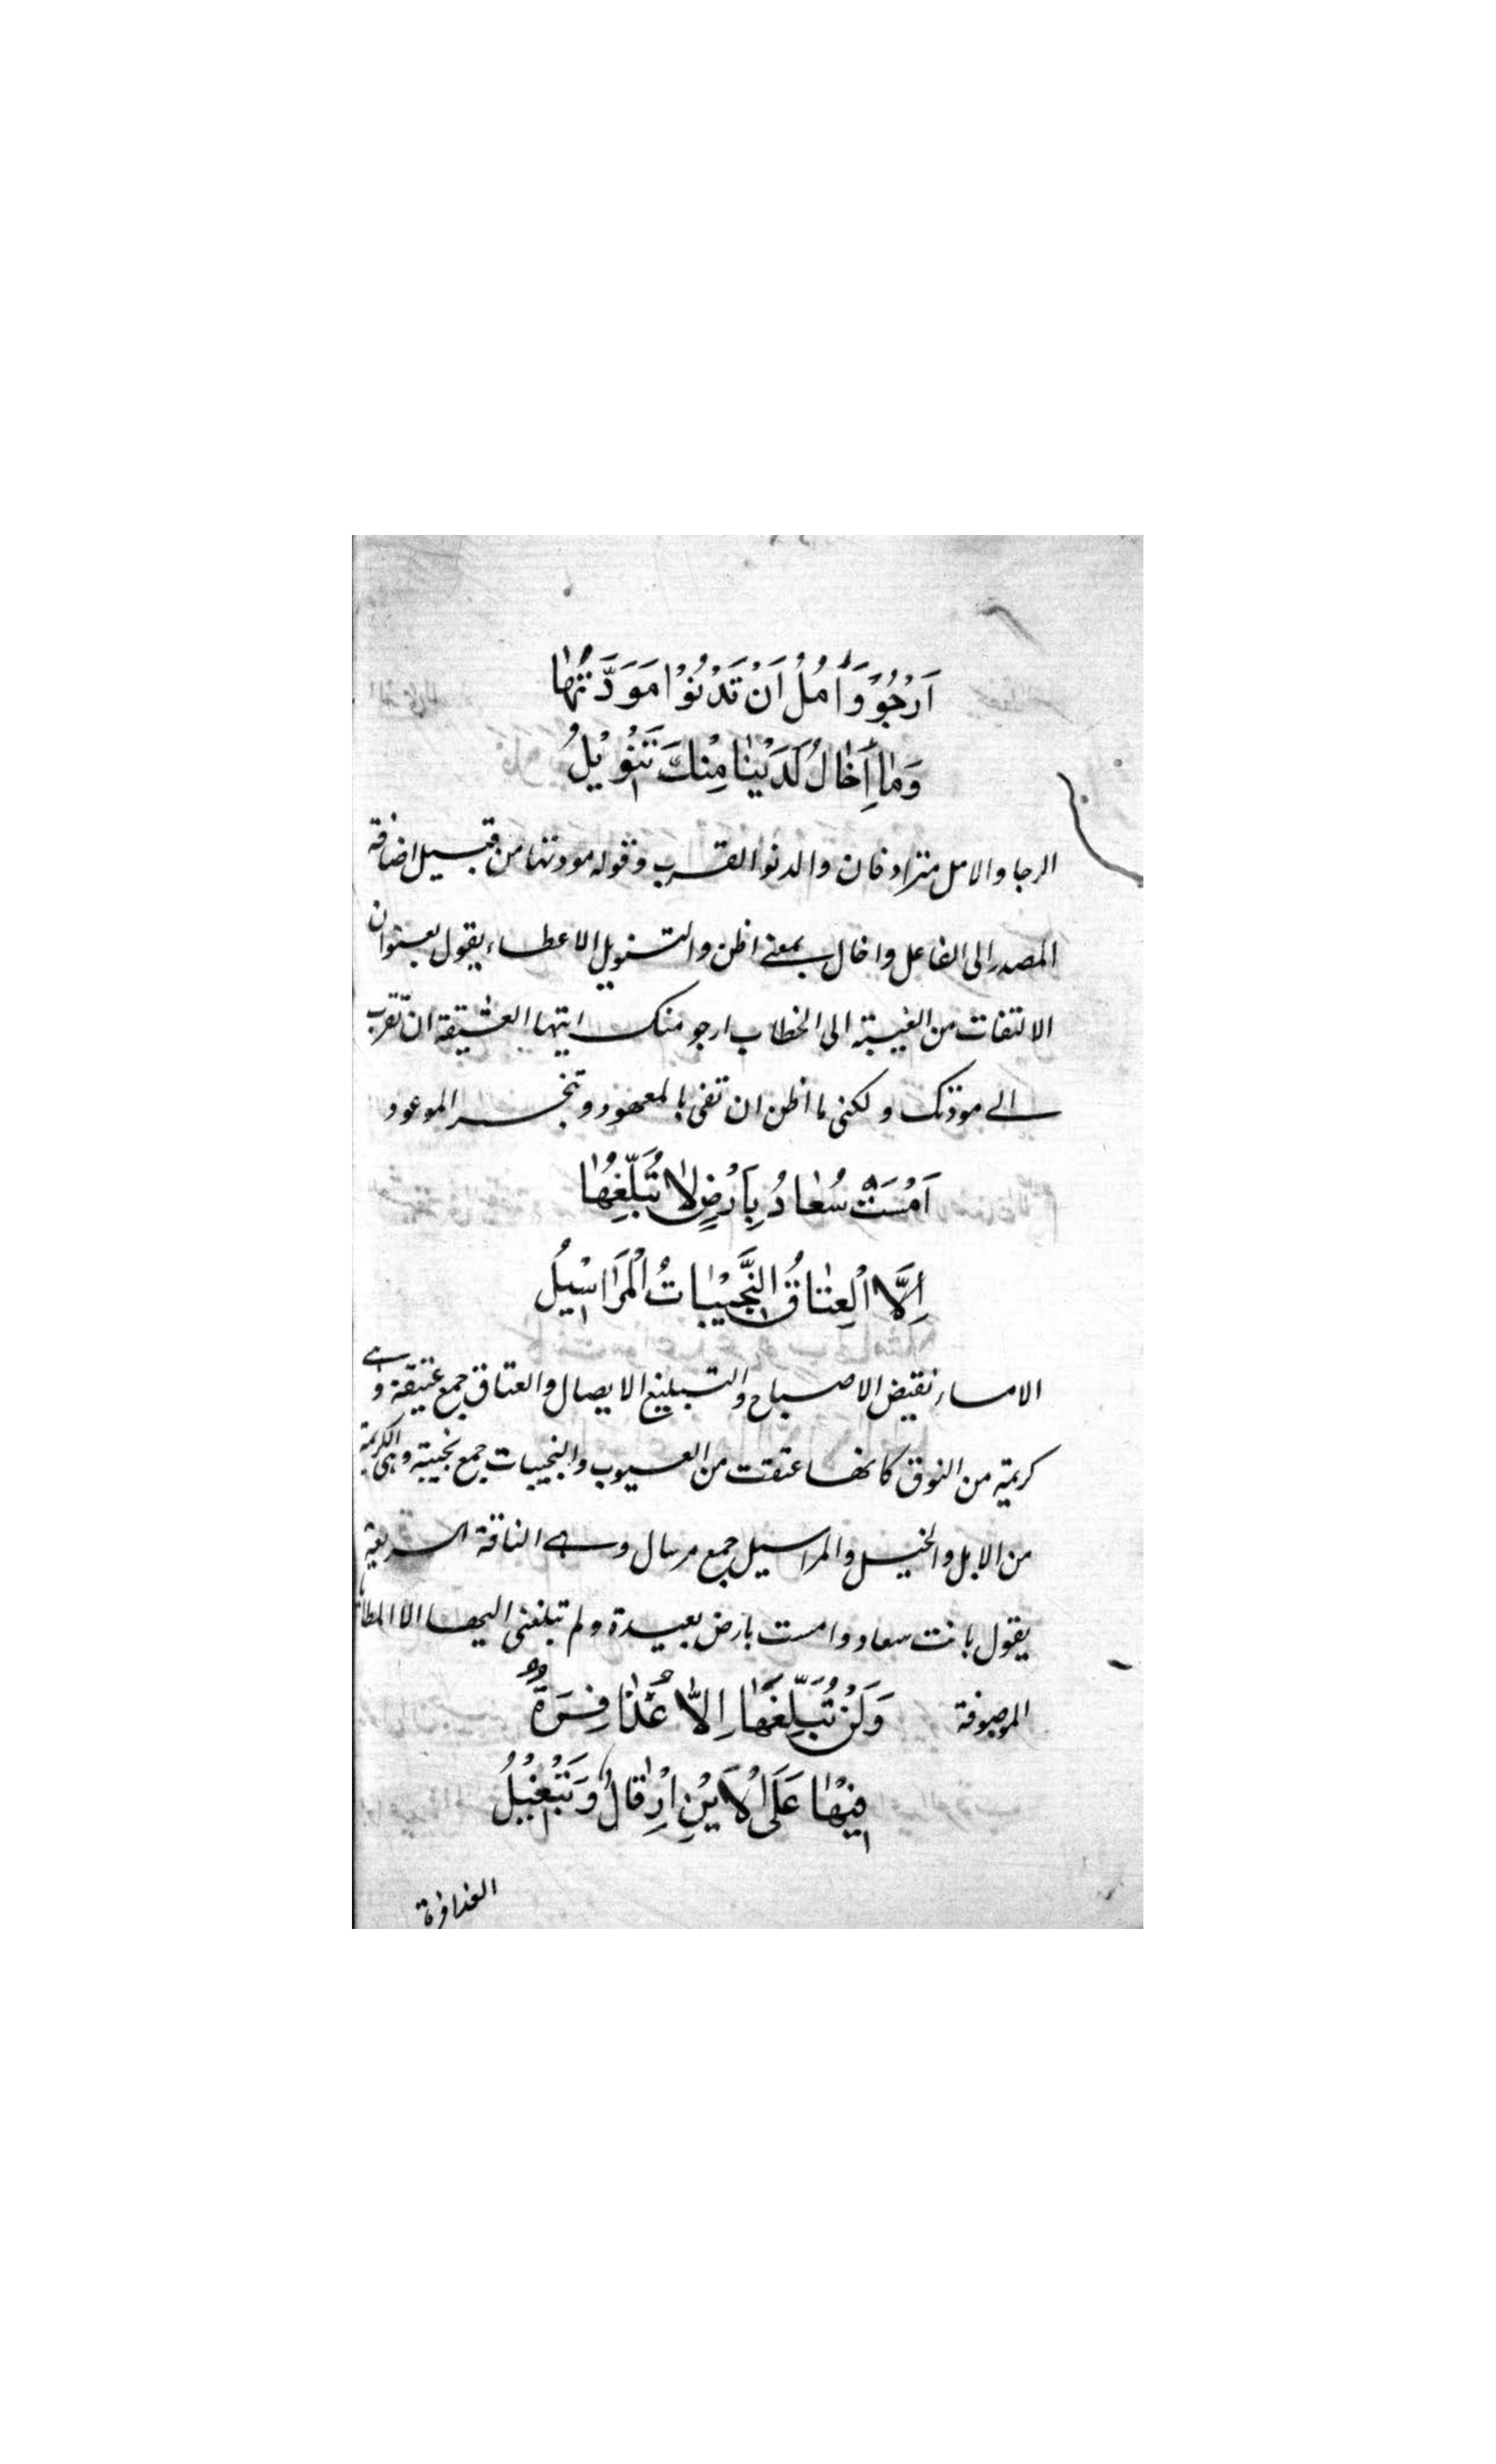 اَرْجُوْ وَاٰمُلُ اَنْ تَدْنُوْا مَوَدَّتُهٰا
وَمٰا اِخٰالُ لَدَيْنٰا مِنْكَ تَنْوِيْلُ
الرجا والامل مترادفان والدنو القرب وقوله مودتها من قبيل اضافة
المصدر الى الفاعل واخال بمعنى اظن والتنويل الاعطاء يقول بعنوان
الالتفات من الغيبة الى الخطاب ارجو منك ايتها العشيقة ان تقرب
الى مودتك ولكنى ما اظن ان تفى بالمعهود وتنجز الموعود
اَمْسَتْ سُعٰادُ بِاَرْضٍ لٰا تُبَلِّغُهٰا
اِلَّا الْعِتٰاقُ النَّجِيْبٰاتُ الْمَرَاسِيْلُ
الامساء نقيض الاصباح والتبليغ الايصال والعتاق جمع عتيقة وهى
كريمة من النوق كانها عتقت من العيوب والنجيبات جمع نجيبة وهى الكريمة
من الابل والخيل والمراسيل جمع مرسال وهى الناقة السريعة
يقول بانت سعاد وامست بارض بعيدة ولم تبلغنى اليها الا المطايا
الموصوفة وَلَنْ تُبَلِّغَهٰا اِلّاٰ عُذٰافِرَةٌ
فِيْهٰا عَلَى الْاَيْنِ اِرْقٰالٌ وَتَبْغِيْلُ
العذافرة